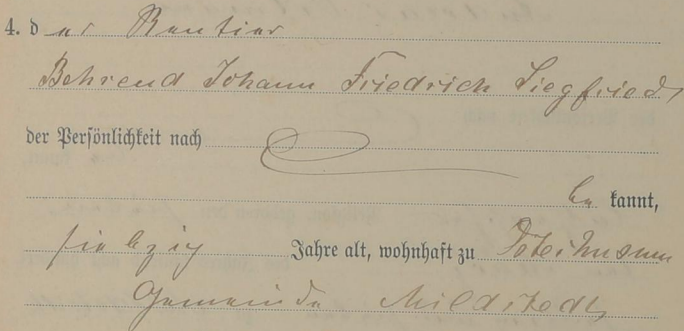 4. der Rentier
Behrend Johann Friedrich Siegfried,
der Persönlichkeit nach
be kannt,
siebzig Jahre alt, wohnhaft zu
Gemeinde Mildstedt,